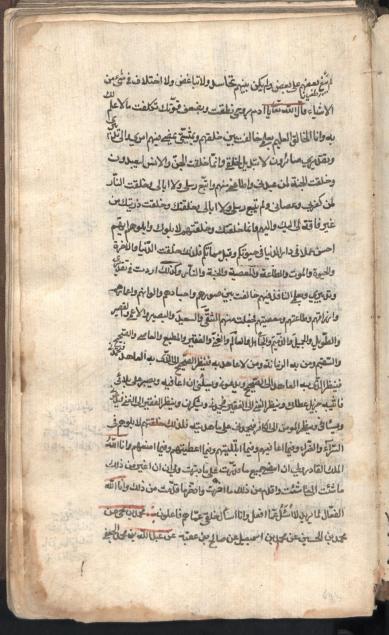 بعضهم على بعض ولم يكن بينهم تحاسد ولا تباغض ولا اختلاف في شئ من
الاشياء قال الله تعالى يا آدم بروحي نطقت وبضعف قوتك تكلفت ما لا علم لك
به وانا الخالق العليم بعلمي خالفت بين خلقهم وبمشيتي يمضي فيهم امري والى تدبيري
وتقديري صائرون لا تبديل لخلقي وانما خلقت الجن والانس ليعبدون
وخلقت الجنة لمن عبدني واطاعني منهم واتبع رسلي ولا ابالي وخلقت النار
لمن كفر بي وعصاني ولم يتبع رسلي ولا ابالي وخلقتك وخلقت ذريتك من
غير فاقة لي اليك واليهم وانما خلقتك وخلقتهم لابلوك وابلوهم ايهم
احسن عملا في دار الدنيا في حيوتكم وقبل مماتكم فلذلك خلقت الدنيا والآخرة
والحيوة والموت والطاعة والمعصية والجنة والنار وكذلك اردت في تقديري
وتدبيري وبعلمي النافذ فيهم خالفت بين صورهم واجسادهم والوانهم واعمارهم
وارزاقهم وطاعتهم ومعصيتهم فجعلت منهم الشقي والسعيد والبصير والاعمى والقصير
والطويل والجميل والدميم والعالم والجاهل والغني والفقير والمطيع والعاصي والصحيح
والسقيم ومن به الزمانة ومن لا عاهة به فينظر الصحيح الى الذي به العاهة
فينظر الذي به العاهة الى الصحيح فيدعوني ويسئلني ان اعافيه ويصبر على بلائي
فاثيبه جزيل عطائي وينظر الغني الى الفقير فيحمدني ويشكرني وينظر الفقير الى الغني فيدعوني
ويسئلني وينظر المؤمن الى الكافر فيحمدني على ما هديته فلذلك خلقتهم لابلوهم في
السراء والضراء وفيما اعافيهم وفيما ابتليهم وفيما اعطيتهم وفيما امنعهم وانا الله
الملك القادر ولي ان امضي جميع ما قدرت على ما دبرت ولي ان اغير من ذلك
ما شئت الى ما شئت واقدم من ذلك ما اخرت واؤخر ما قدمت من ذلك وانا الله
الفعال لما اريد لا اسئل عما افعل وانا اسال خلقي عما هم فاعلون محمد بن يحيى عن
محمد بن الحسين عن محمد بن اسمعيل عن صالح بن عقبة عن عبد الله بن محمد الجعفي